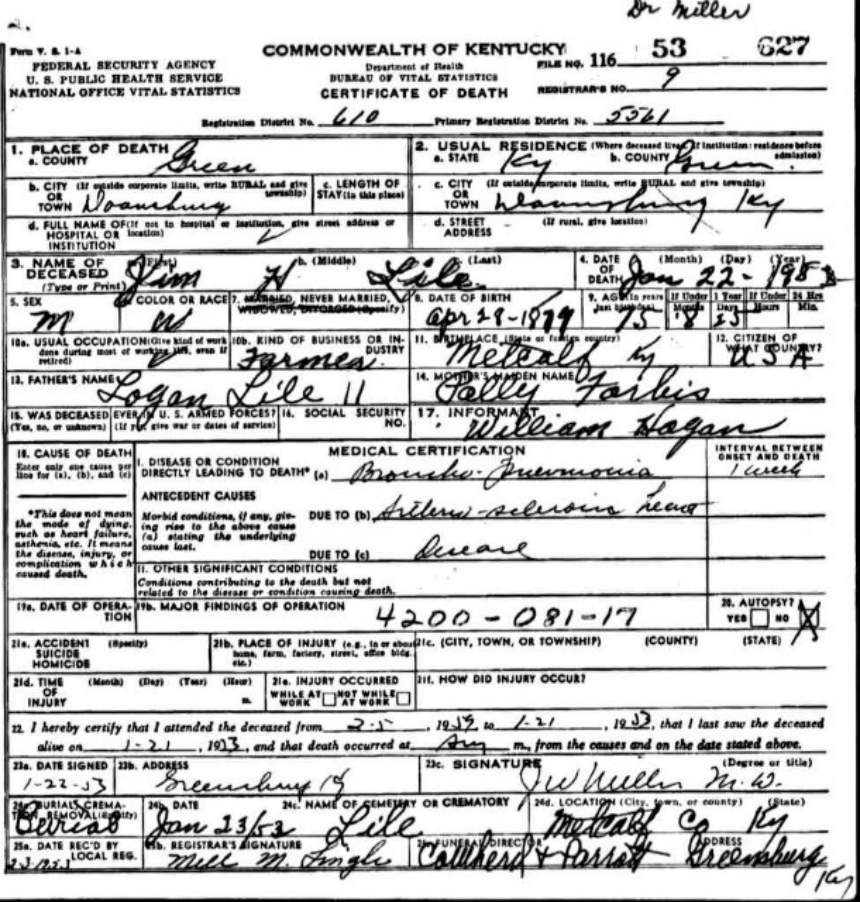 Dr Miller
2.
Form V. S. 1-A
FEDERAL SECURITY AGENCY
U. S. PUBLIC HEALTH SERVICE
NATIONAL OFFICE VITAL STATISTICS
COMMONWEALTH OF KENTUCKY
Department of Health
BUREAU OF VITAL STATISTICS
CERTIFICATE OF DEATH
FILE NO. 116 53 627
REGISTRAR'S NO. 9
Registration District No. 610 Primary Registration District No. 5561
1. PLACE OF DEATH
a. COUNTY Green
2. USUAL RESIDENCE (Where deceased lived. If institution: residence before admission)
a. STATE Ky b. COUNTY Green
b. CITY (If outside corporate limits, write RURAL and give township)
OR
TOWN Donansburg
c. LENGTH OF
STAY (in this place)
c. CITY (If outside corporate limits, write RURAL and give township)
OR
TOWN Donansburg Ky
d. FULL NAME OF (If not in hospital or institution, give street address or location)
HOSPITAL OR
INSTITUTION
d. STREET (If rural, give location)
ADDRESS
3. NAME OF DECEASED
(Type or Print)
a. (First) b. (Middle) c. (Last)
Jim H Lile
4. DATE OF DEATH (Month) (Day) (Year)
Jan 22-1953
5. SEX
M
6. COLOR OR RACE
W
7. MARRIED, NEVER MARRIED,
WIDOWED, DIVORCED (Specify)
8. DATE OF BIRTH
Apr 28-1879
9. AGE (In years last birthday) If Under 1 Year If Under 24 Hrs
Months Days Hours Min.
8
10a. USUAL OCCUPATION (Give kind of work done during most of working life, even if retired)
10b. KIND OF BUSINESS OR INDUSTRY
Farmer
11. BIRTHPLACE (State or foreign country)
Metcalf Ky
12. CITIZEN OF
WHAT COUNTRY?
USA
13. FATHER'S NAME
Logan Lile
14. MOTHER'S MAIDEN NAME
Sally Forbis
15. WAS DECEASED EVER IN U. S. ARMED FORCES?
(Yes, no, or unknown) (If yes, give war or dates of service)
16. SOCIAL SECURITY
NO.
17. INFORMANT
William Hogan
18. CAUSE OF DEATH
Enter only one cause per
line for (a), (b), and (c)
*This does not mean
the mode of dying,
such as heart failure,
asthenia, etc. It means
the disease, injury, or
complication which
caused death.
MEDICAL CERTIFICATION
INTERVAL BETWEEN
ONSET AND DEATH
I. DISEASE OR CONDITION
DIRECTLY LEADING TO DEATH* (a) Broncho-Pneumonia 1 week
ANTECEDENT CAUSES
Morbid conditions, if any, giving rise to the above cause (a) stating the underlying cause last.
DUE TO (b) Arterio-sclerosis heart
DUE TO (c) Disease
II. OTHER SIGNIFICANT CONDITIONS
Conditions contributing to the death but not
related to the disease or condition causing death.
19a. DATE OF OPERATION
19b. MAJOR FINDINGS OF OPERATION
4200-081-17
20. AUTOPSY?
YES NO X
21a. ACCIDENT (Specify)
SUICIDE
HOMICIDE
21b. PLACE OF INJURY (e.g., in or about home, farm, factory, street, office bldg. etc.)
21c. (CITY, TOWN, OR TOWNSHIP) (COUNTY) (STATE)
21d. TIME (Month) (Day) (Year) (Hour)
OF
INJURY m.
21e. INJURY OCCURRED
WHILE AT WORK NOT WHILE AT WORK
21f. HOW DID INJURY OCCUR?
22. I hereby certify that I attended the deceased from 2-5, 19 to 1-21, 1953, that I last saw the deceased
alive on 1-21, 1953, and that death occurred at m., from the causes and on the date stated above.
23a. DATE SIGNED
1-22-53
23b. ADDRESS
Greensburg Ky
23c. SIGNATURE (Degree or title)
J W Miller M.D.
24a. BURIAL, CREMATION, REMOVAL (Specify)
Burial
24b. DATE
Jan 23/53
24c. NAME OF CEMETERY OR CREMATORY
Lile
24d. LOCATION (City, town, or county) (State)
Metcalf Co Ky
25a. DATE REC'D BY
LOCAL REG.
2-3-1953
25b. REGISTRAR'S SIGNATURE
M.
FUNERAL DIRECTOR ADDRESS
Cowherd & Parrott Greensburg
Ky